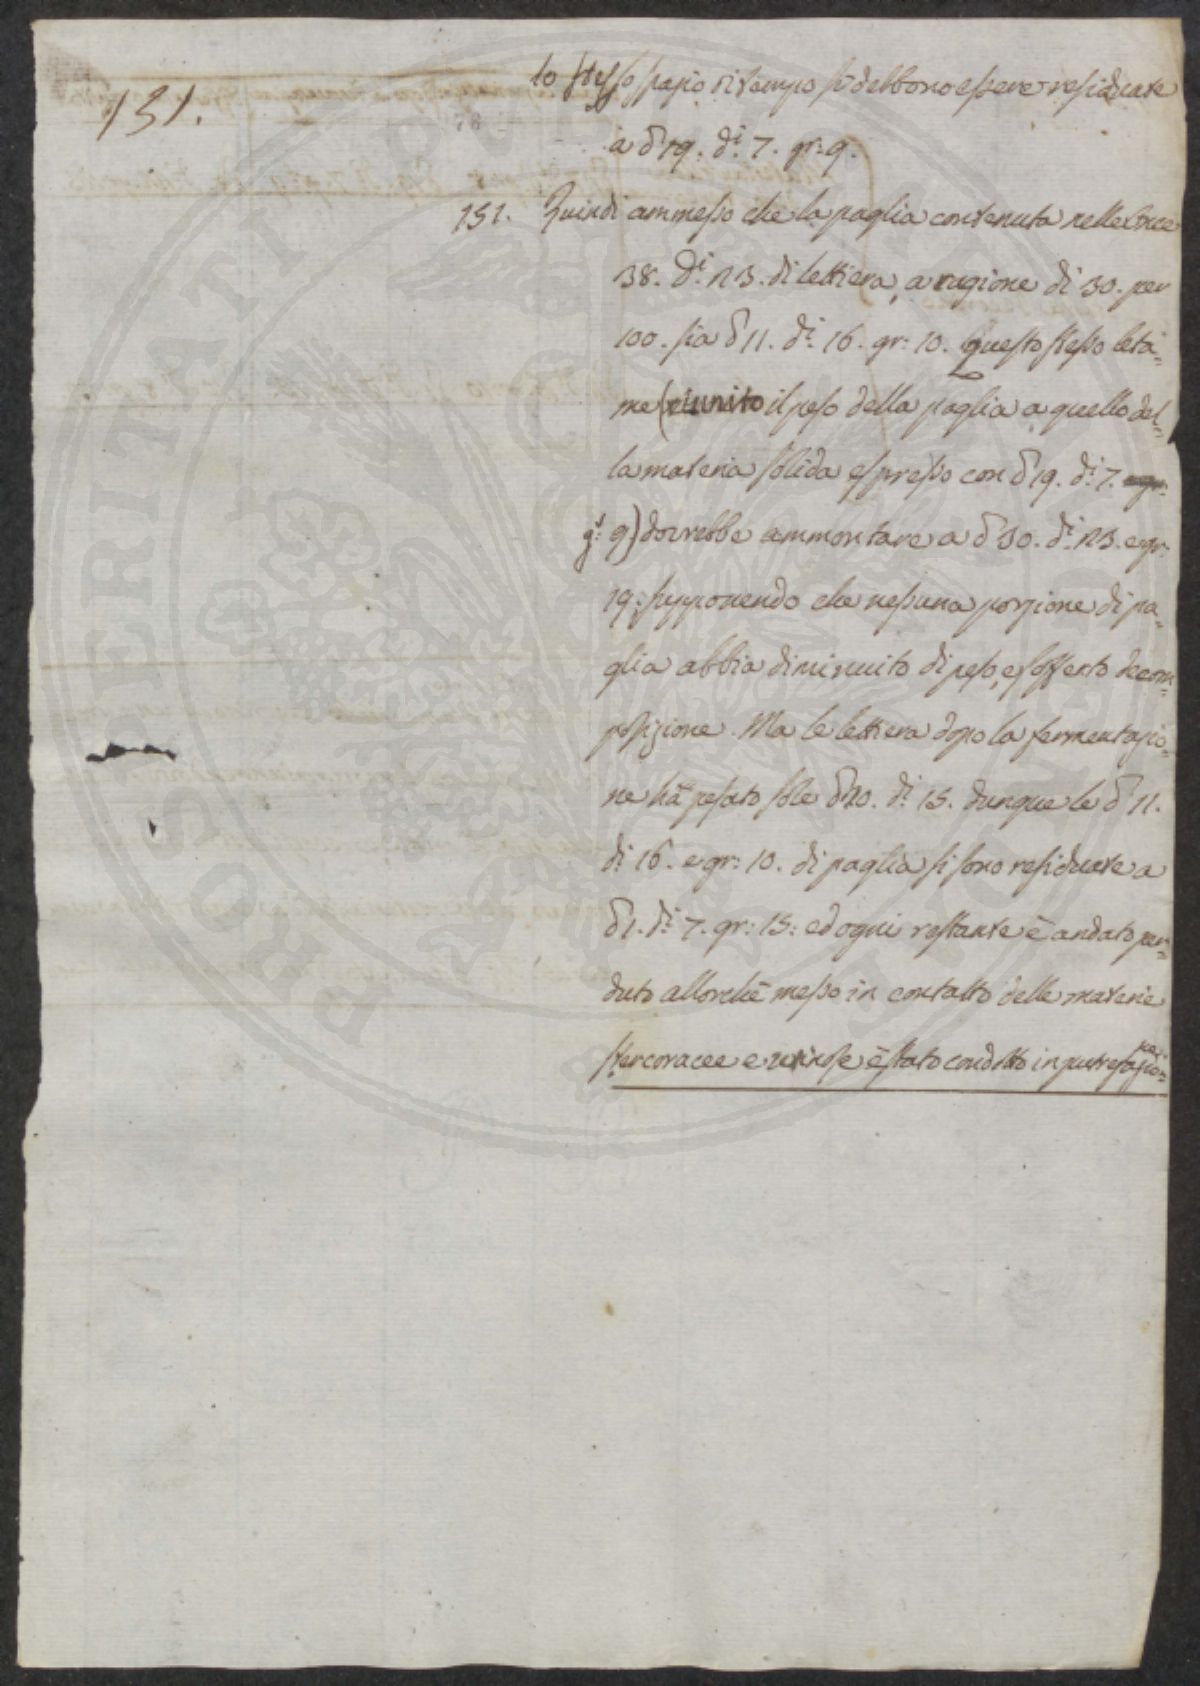 131.
lo stesso spazio di tempo si debbono essere residuate
a ℔ 19. di: 7. gr: 9.
151. Quindi ammesso che la paglia contenuta nelle libre
38. di: 23. di lettiera, a ragione di 30. per
100. sia ℔ 11. di: 16. gr: 10. Questo stesso leta=
me (riunito il peso della paglia a quello del=
la materia solida espresso con ℔ 19. di: 7.
gr: 9) dovrebbe ammontare a ℔ 30. di: 23. e gr:
19: supponendo che nessuna porzione di pa=
glia abbia diminuito di peso, e sofferto decom=
posizione. Ma le lettiera dopo la fermentazio=
ne hà pesato sole ℔ 20. di: 15. dunque le ℔ 11.
di: 16. e gr: 10. di paglia si sono residuate a
℔ 1. di: 7. gr: 15: ed ogni restante è andato per=
duto allorché messo in contatto delle materie
stercoracee e urinose è stato condotto in putrefazio=
ne
PROSPERITATI PUBLICAE